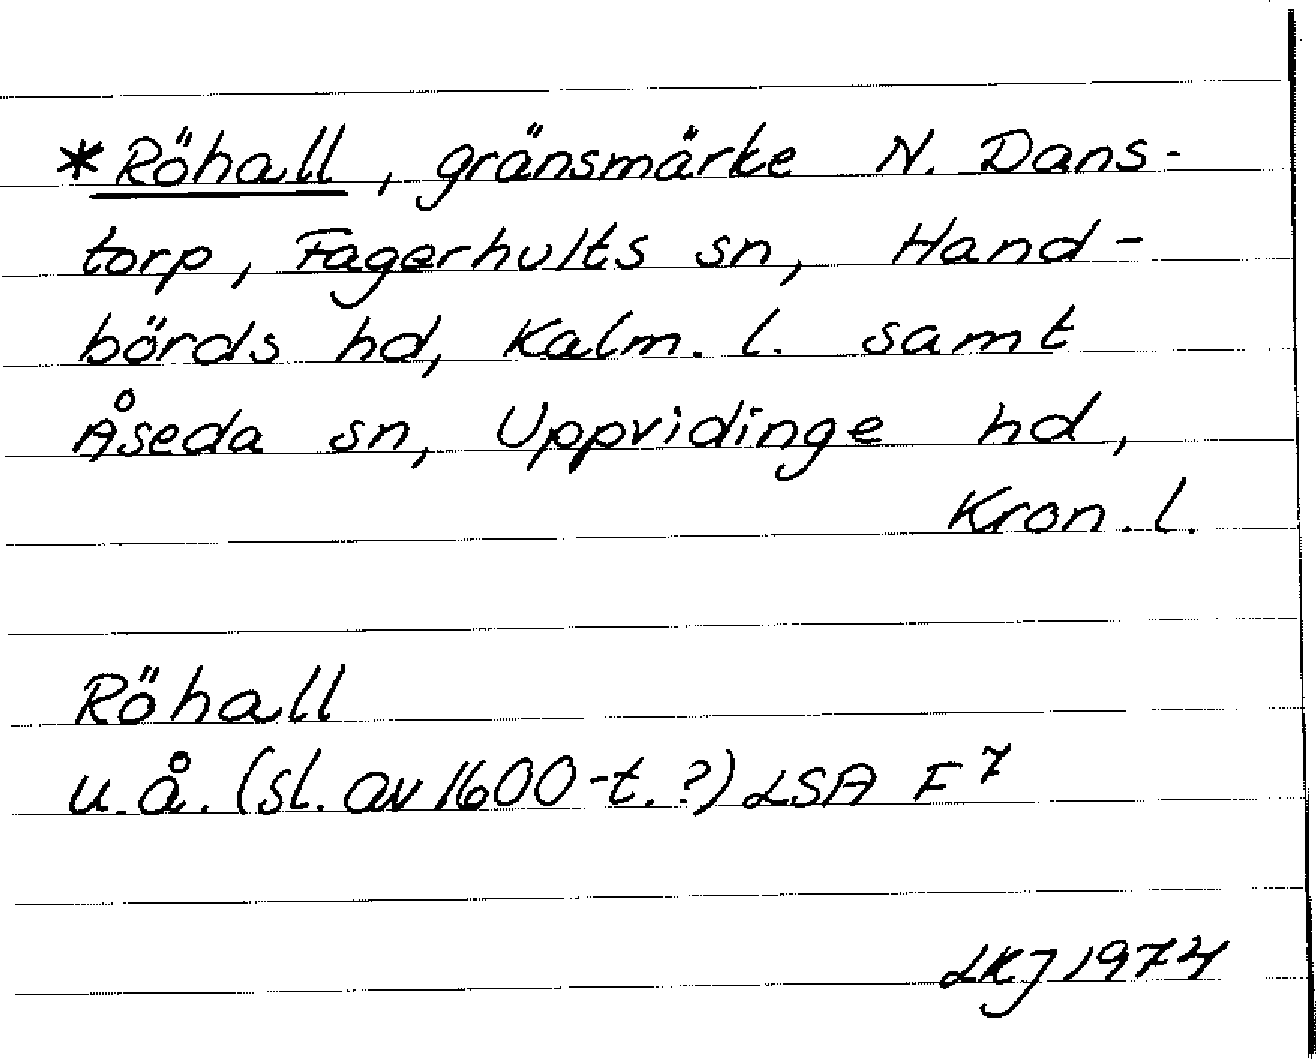 *Röhall, gränsmärke N. Dans-
torp, Fagerhults sn, Hand-
börds hd, Kalm. l. samt
Åseda sn, Uppvidinge hd,
Kron. l.
Röhall
u.å. (sl. av 1600-t.?) LSA F7
LKJ 1974